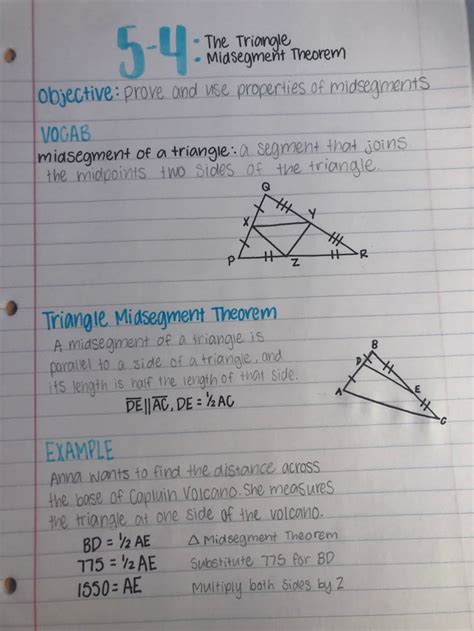 5-4 : The Triangle
Midsegment Theorem
Objective: prove and use properties of midsegments
VOCAB
midsegment of a triangle: a segment that joins
the midpoints two sides of the triangle.
Q
X
Y
P
Z
R
Triangle Midsegment Theorem
A midsegment of a triangle is
parallel to a side of a triangle, and
its length is half the length of that side.
DE||AC, DE = ½AC
B
D
A
E
C
EXAMPLE
Anna wants to find the distance across
the base of Capluin Volcano. She measures
the triangle at one side of the volcano.
BD = ½ AE Δ Midsegment Theorem
775 = ½ AE Substitute 775 for BD
1550 = AE Multiply both sides by 2